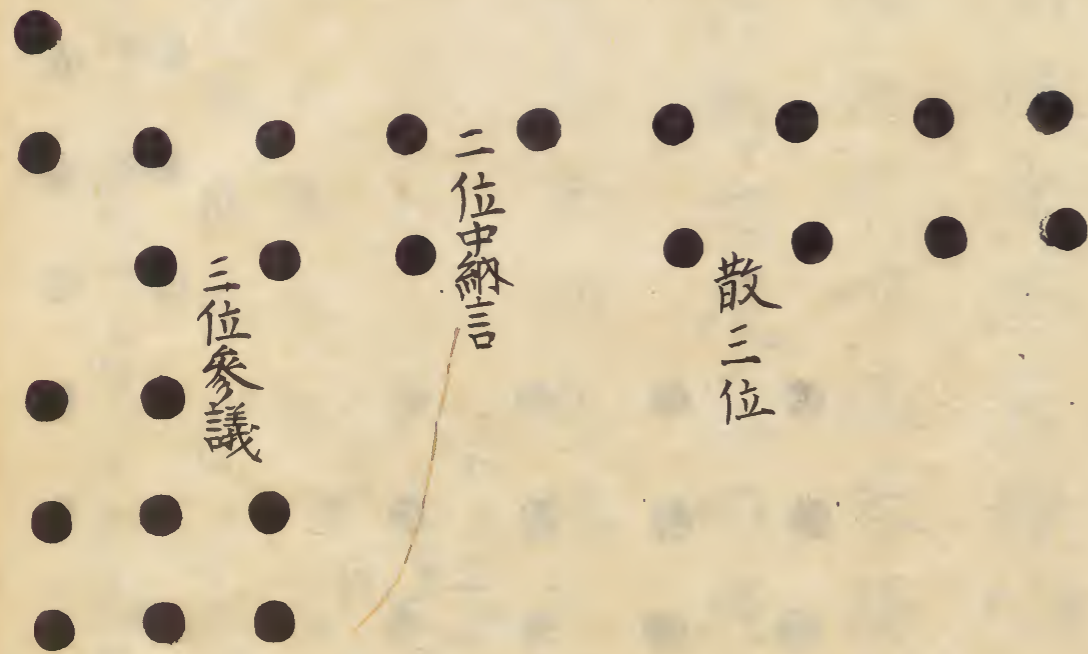 散三位
二位中納言
三位参議